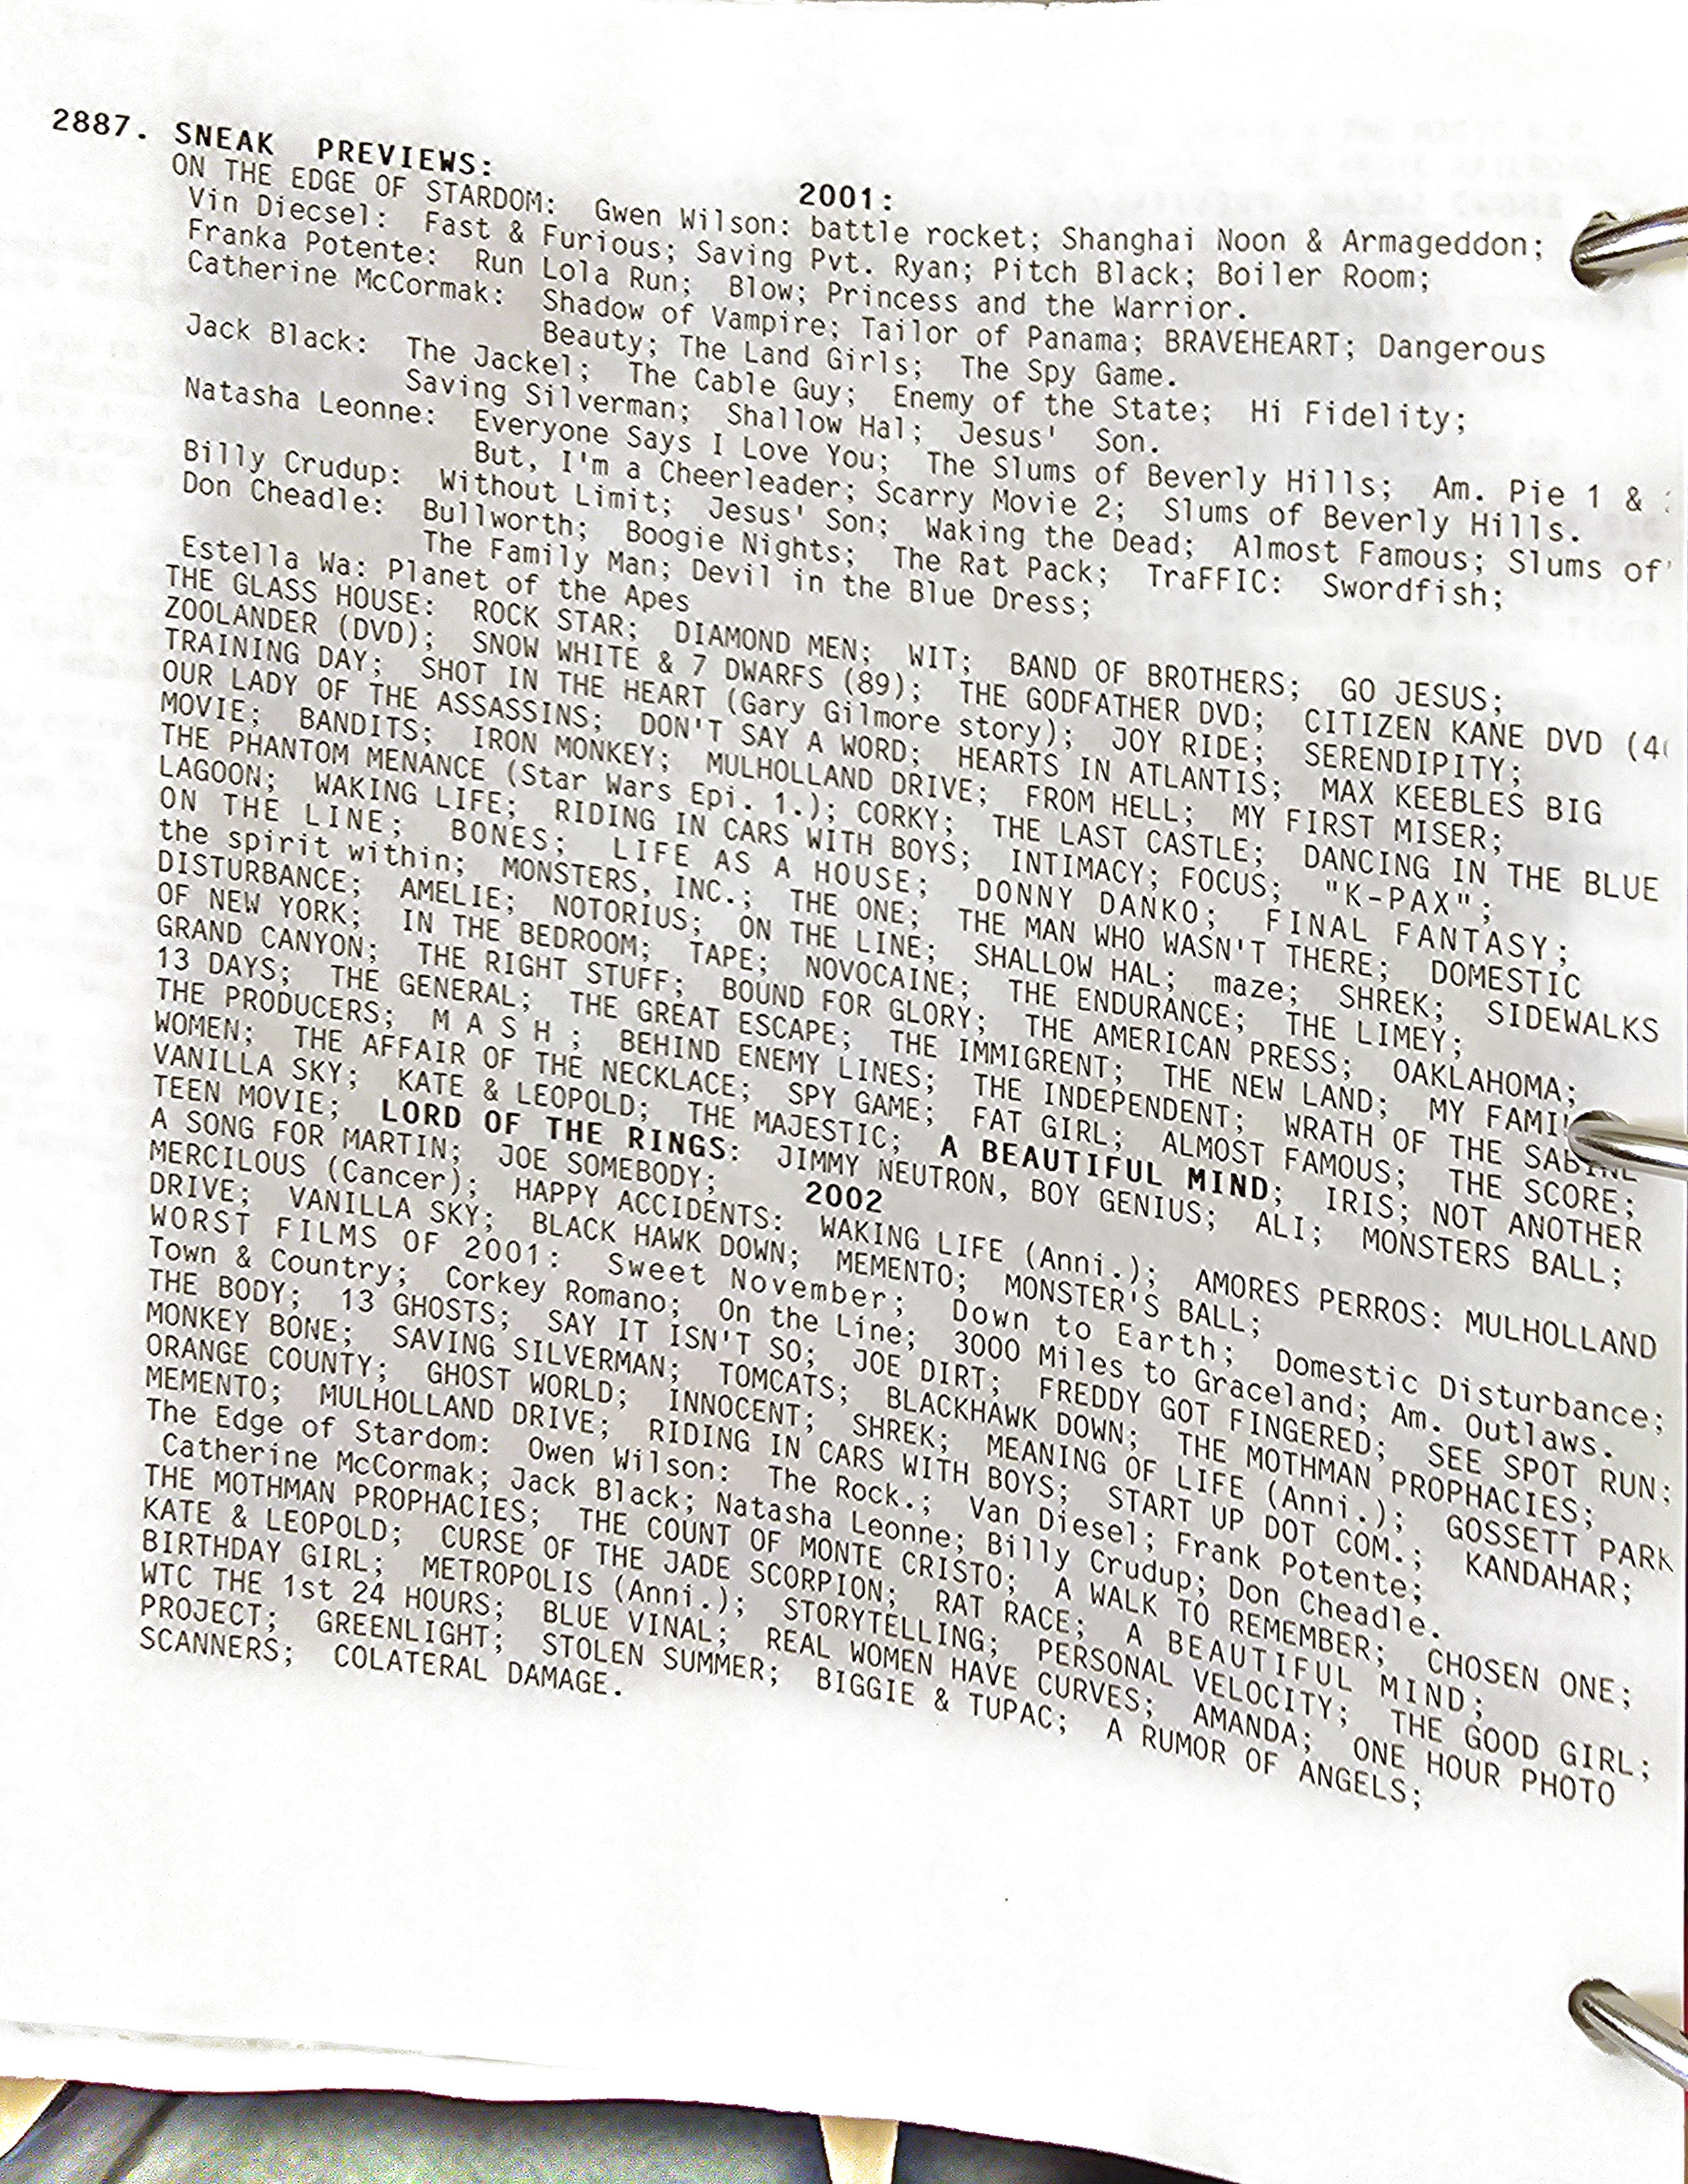 2887. SNEAK PREVIEWS: 2001:
ON THE EDGE OF STARDOM: Gwen Wilson: battle rocket; Shanghai Noon & Armageddon;
Vin Diecsel: Fast & Furious; Saving Pvt. Ryan; Pitch Black; Boiler Room;
Franka Potente: Run Lola Run; Blow; Princess and the Warrior.
Catherine McCormak: Shadow of Vampire; Tailor of Panama; BRAVEHEART; Dangerous
Beauty; The Land Girls; The Spy Game.
Jack Black: The Jackel; The Cable Guy; Enemy of the State; Hi Fidelity;
Saving Silverman; Shallow Hal; Jesus' Son.
Natasha Leonne: Everyone Says I Love You; The Slums of Beverly Hills; Am. Pie 1 &
But, I'm a Cheerleader; Scarry Movie 2; Slums of Beverly Hills.
Billy Crudup: Without Limit; Jesus' Son; Waking the Dead; Almost Famous; Slums of
Don Cheadle: Bullworth; Boogie Nights; The Rat Pack; TraFFIC: Swordfish;
The Family Man; Devil in the Blue Dress;
Estella Wa: Planet of the Apes
THE GLASS HOUSE: ROCK STAR; DIAMOND MEN; WIT; BAND OF BROTHERS; GO JESUS;
ZOOLANDER (DVD); SNOW WHITE & 7 DWARFS (89); THE GODFATHER DVD; CITIZEN KANE DVD (4
TRAINING DAY; SHOT IN THE HEART (Gary Gilmore story); JOY RIDE; SERENDIPITY;
OUR LADY OF THE ASSASSINS; DON'T SAY A WORD; HEARTS IN ATLANTIS; MAX KEEBLES BIG
MOVIE; BANDITS; IRON MONKEY; MULHOLLAND DRIVE; FROM HELL; MY FIRST MISER;
THE PHANTOM MENANCE (Star Wars Epi. 1.); CORKY; THE LAST CASTLE; DANCING IN THE BLUE
LAGOON; WAKING LIFE; RIDING IN CARS WITH BOYS; INTIMACY; FOCUS; "K-PAX";
ON THE LINE; BONES; LIFE AS A HOUSE; DONNY DANKO; FINAL FANTASY;
the spirit within; MONSTERS, INC.; THE ONE; THE MAN WHO WASN'T THERE; DOMESTIC
DISTURBANCE; AMELIE; NOTORIUS; ON THE LINE; SHALLOW HAL; maze; SHREK; SIDEWALKS
OF NEW YORK; IN THE BEDROOM; TAPE; NOVOCAINE; THE ENDURANCE; THE LIMEY;
GRAND CANYON; THE RIGHT STUFF; BOUND FOR GLORY; THE AMERICAN PRESS; OAKLAHOMA;
13 DAYS; THE GENERAL; THE GREAT ESCAPE; THE IMMIGRENT; THE NEW LAND; MY FAMI
THE PRODUCERS; M A S H ; BEHIND ENEMY LINES; THE INDEPENDENT; WRATH OF THE SABINE
WOMEN; THE AFFAIR OF THE NECKLACE; SPY GAME; FAT GIRL; ALMOST FAMOUS; THE SCORE;
VANILLA SKY; KATE & LEOPOLD; THE MAJESTIC; A BEAUTIFUL MIND; IRIS; NOT ANOTHER
TEEN MOVIE; LORD OF THE RINGS: JIMMY NEUTRON, BOY GENIUS; ALI; MONSTERS BALL;
A SONG FOR MARTIN; JOE SOMEBODY; 2002
MERCILOUS (Cancer); HAPPY ACCIDENTS: WAKING LIFE (Anni.); AMORES PERROS: MULHOLLAND
DRIVE; VANILLA SKY; BLACK HAWK DOWN; MEMENTO; MONSTER'S BALL;
WORST FILMS OF 2001: Sweet November; Down to Earth; Domestic Disturbance;
Town & Country; Corkey Romano; On the Line; 3000 Miles to Graceland; Am. Outlaws.
THE BODY; 13 GHOSTS; SAY IT ISN'T SO; JOE DIRT; FREDDY GOT FINGERED; SEE SPOT RUN;
MONKEY BONE; SAVING SILVERMAN; TOMCATS; BLACKHAWK DOWN; THE MOTHMAN PROPHACIES;
ORANGE COUNTY; GHOST WORLD; INNOCENT; SHREK; MEANING OF LIFE (Anni.); GOSSETT PARK
MEMENTO; MULHOLLAND DRIVE; RIDING IN CARS WITH BOYS; START UP DOT COM.; KANDAHAR;
The Edge of Stardom: Owen Wilson: The Rock.; Van Diesel; Frank Potente;
Catherine McCormak; Jack Black; Natasha Leonne; Billy Crudup; Don Cheadle.
THE MOTHMAN PROPHACIES; THE COUNT OF MONTE CRISTO; A WALK TO REMEMBER; CHOSEN ONE;
KATE & LEOPOLD; CURSE OF THE JADE SCORPION; RAT RACE; A BEAUTIFUL MIND;
BIRTHDAY GIRL; METROPOLIS (Anni.); STORYTELLING; PERSONAL VELOCITY; THE GOOD GIRL;
WTC THE 1st 24 HOURS; BLUE VINAL; REAL WOMEN HAVE CURVES; AMANDA; ONE HOUR PHOTO
PROJECT; GREENLIGHT; STOLEN SUMMER; BIGGIE & TUPAC; A RUMOR OF ANGELS;
SCANNERS; COLATERAL DAMAGE.